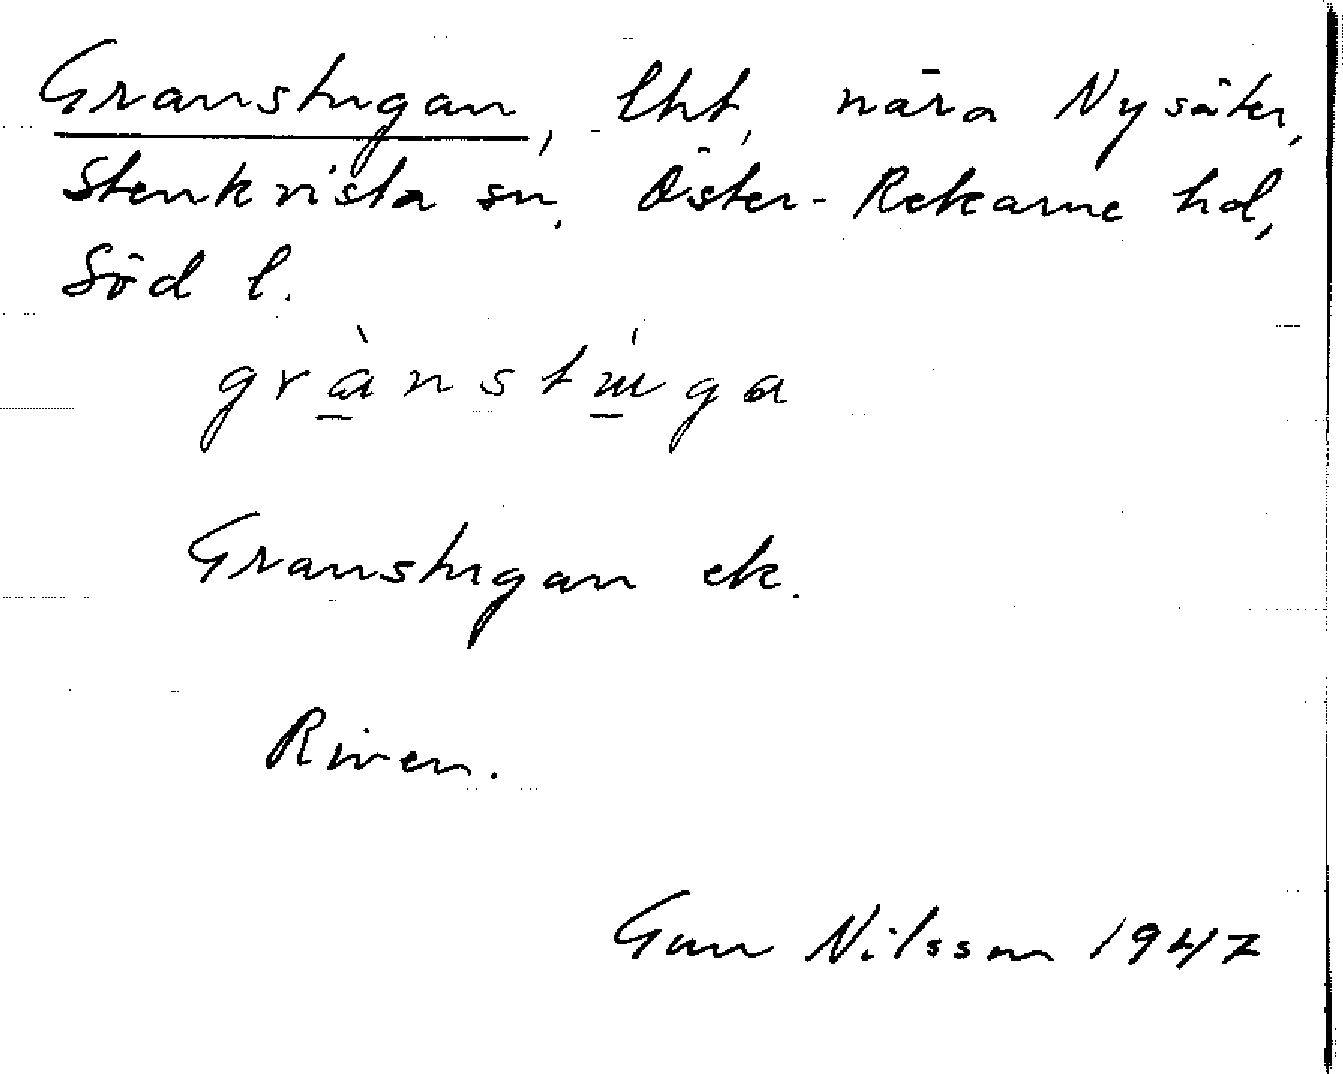 Granstugan, lht, nära Nysäter,
Stenkvista sn, Öster-Rekarne hd,
Söd l.
grànstúga
Granstugan ek.
Riven.
Gun Nilsson 1947